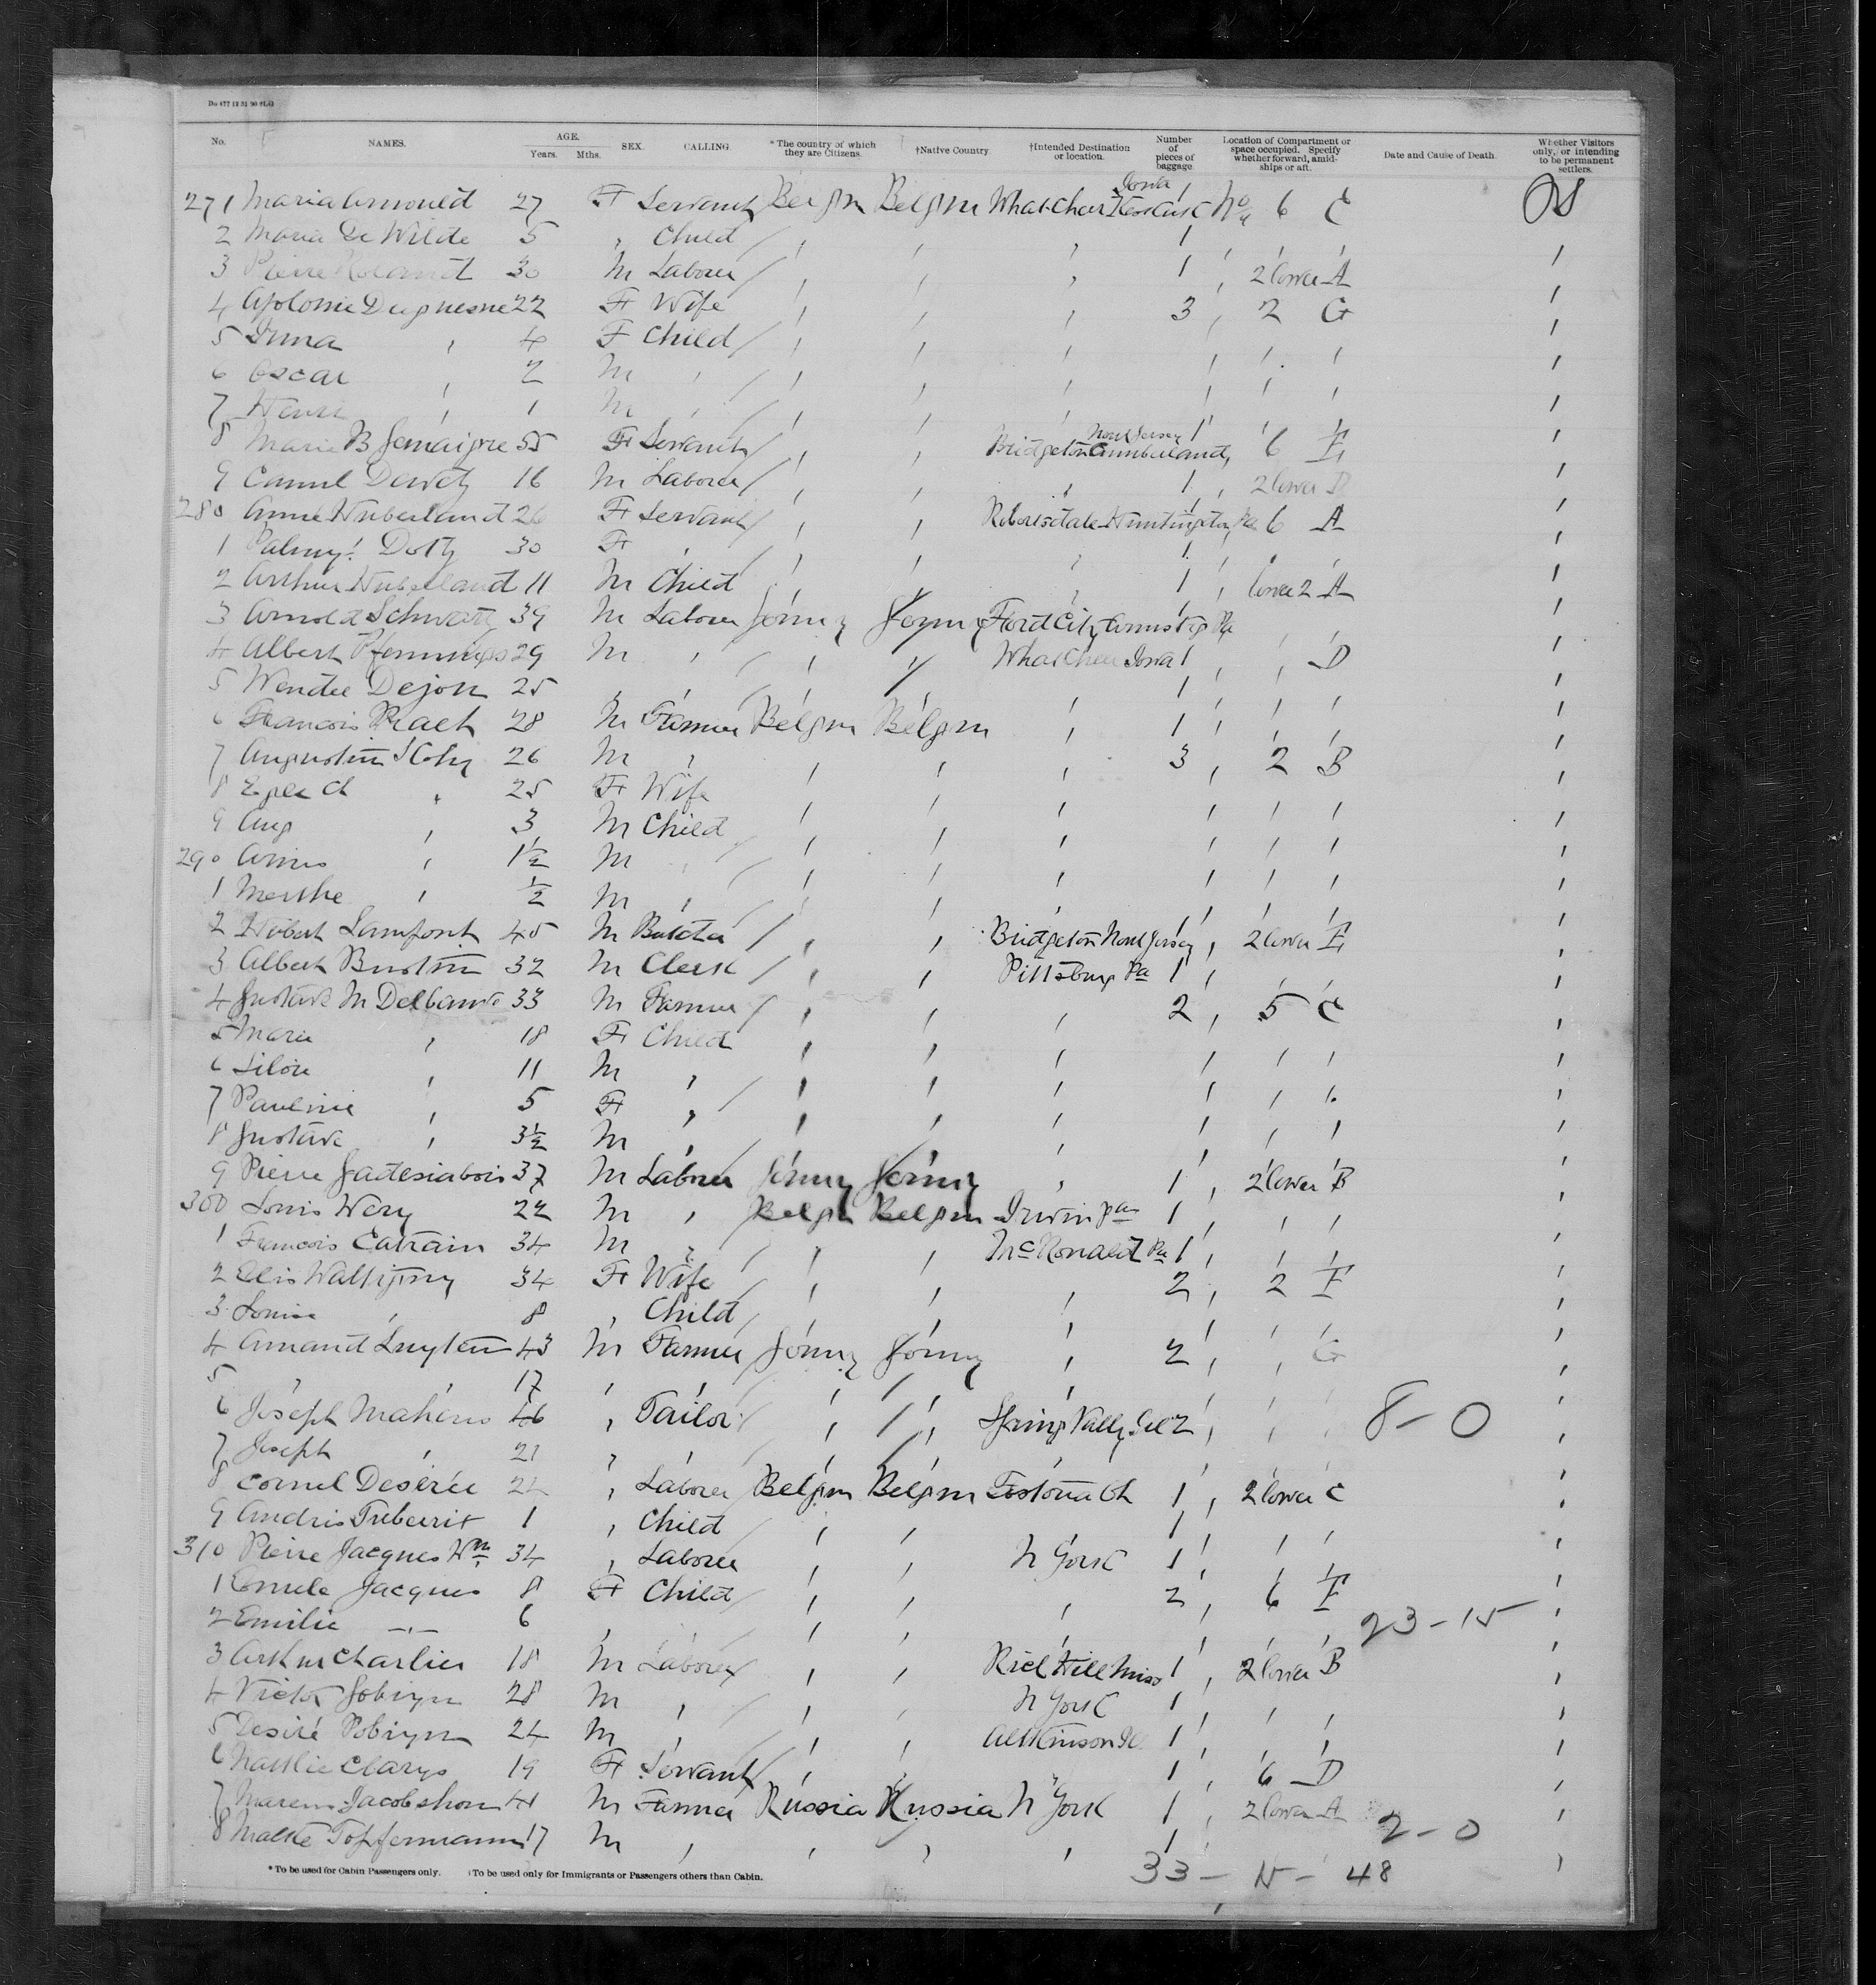 Do 477 12 31 90 FLG
No. NAMES. AGE. Years. Mths. SEX. CALLING. *The country of which they are Citizens. †Native Country. †Intended Destination or location. Number of pieces of baggage. Location of Compartment or space occupied. Specify whether forward, amid-ships or aft. Date and Cause of Death. Whether Visitors only, or intending to be permanent settlers.
271 Maria Arnould 27 F Servant Belgm Belgm What Cheer Keokuk Iowa 1 No 6 C
2 Maria De Wilde 5 " Child " " " 1
3 Pierre 30 M Laborer " " " 1 " 2 lower A "
4 Apolonie Duquesne 22 F Wife " " " 3 " 2 G "
5 Irma " 4 F Child " " " " " " "
6 Oscar " 2 M " " " " " " " "
7 Henri " 1 M " " " " 1
8 Marie B Jemaigne 55 F Servant " " Bridgeton Cumberland New Jersey 6 E "
9 Camil 16 M Laborer " " " 1 " 2 lower D "
280 Anna Huberland 26 F Servant " " Robertsdale Huntington Pa 6 A "
1 Palmy. Doty 30 F " " " " 1 "
2 Arthur Huberland 11 M Child " " " 1 " lower 2 A "
3 Arnold Schwartz 39 M Laborer Germy Germy Ford City Armstrg Pa " "
4 Albert Pfennings 29 M " " " What Cheer Iowa 1 " " D "
5 Dejon 25 " " " " " 1 " " " "
6 Francois Raeh 28 M Farmer Belgm Belgm " 1 " " " "
7 Augustin 26 M " " " " 3 " 2 B "
8 " 25 F Wife " " " " " " "
9 Aug " 3 M Child " " " " " " "
290 " 1½ M " " " " " " " "
1 Merthe " ½ M " " " " " " " "
2 Hubert Lamfont 45 M Butcher " " Bridgeton New Jersey " 2 lower E "
3 Albert 32 M Clerk " " Pittsburg Pa 1 " " " "
4 Gustave M 33 M Farmer " " " 2 " 5 C "
5 Marie " 18 F Child " " " " " " "
6 " 11 M " " " " " " " "
7 Pauline " 5 F " " " " " " " "
8 Gustave " 3½ M " " " " " " " "
9 Pierre 37 M Laborer Germy Germy " 1 " 2 lower B "
300 Louis Wery 22 M " Belgm Belgm Irwin Pa 1 " " " "
1 Francois Catrain 34 M " " " McDonald Pa 1 " " " "
2 34 F Wife " " " 2 " 2 F "
3 Louise " 8 " Child " " " " " " "
4 Armand Luyten 43 M Farmer Germy Germy " 2 " " G "
5 " " 17 " " " " "
6 Joseph Mahieu 46 " Tailor " " Spring Vally Ill 2 " " " 8-0 "
7 Joseph " 21 " " " " "
8 Cornel Desirée 22 " Laborer Belgm Belgm Fostoria Oh 1 " 2 lower C "
9 1 " Child " " " 1 "
310 Pierre Jacques Wm 34 " Laborer " " N York 1 " " " "
1 Jacques 8 F Child " " " 2 " 6 F "
2 Emilie " 6 " " " " " " " " 23-15 "
3 Arthur Charlier 18 M Laborer " " Rich Hill Miss 1 " 2 lower B "
4 Victor 28 M " " " N York 1 " " " "
5 Desiré 24 M " " " Attkinson Ill 1 " " " "
6 Natlie Clarys 19 F Servant " " " 1 " 6 D "
7 Jacobshon 41 M Farmer Russia Russia N York 1 " 2 lower A "
8 Topfermann 17 M " " " " 1 " 2-0 "
33 - 15 - 48
*To be used for Cabin Passengers only. †To be used only for Immigrants or Passengers others than Cabin.